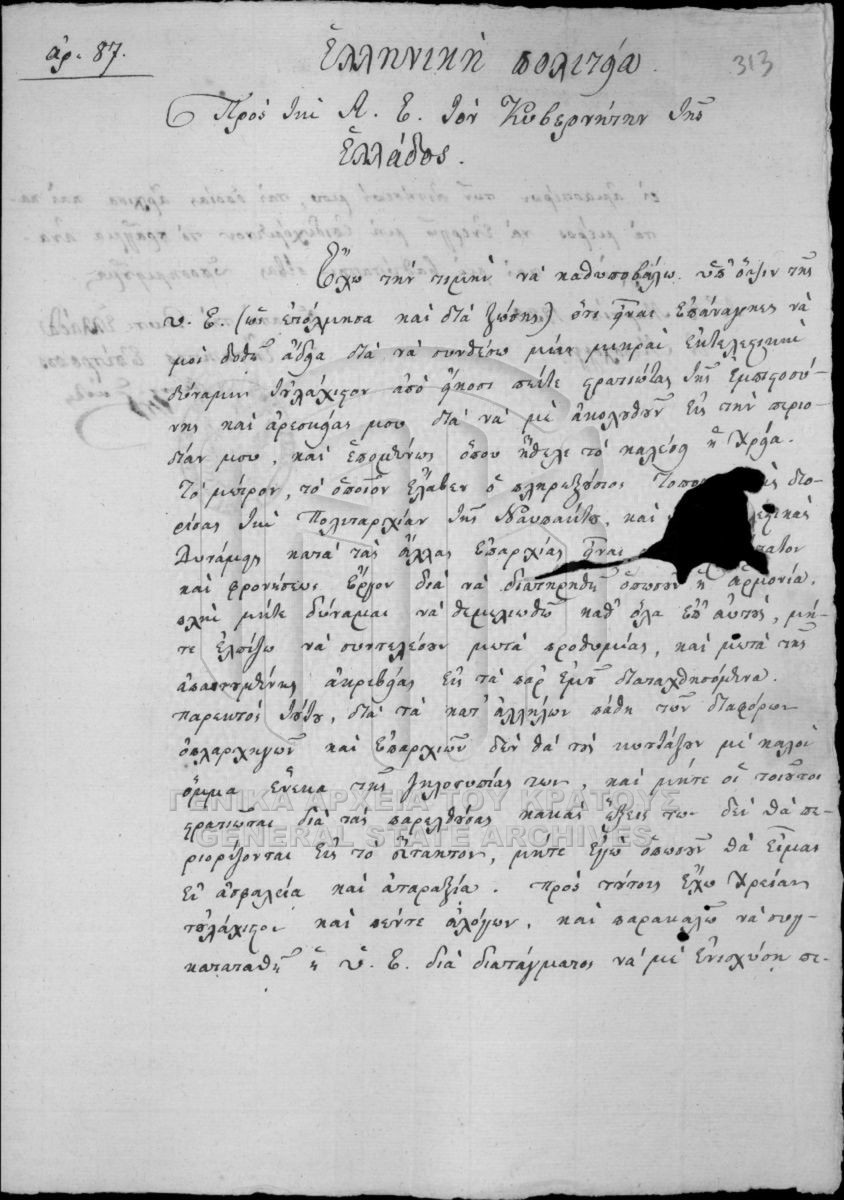 ἀρ. 87.
313
Ἑλληνικὴ πολιτεία.
Πρὸς τὴν Α. Ε. τὸν Κυβερνήτην τῆς
Ἑλλάδος.
Ἔχω τὴν τιμὴν νὰ καθυποβάλω ὑπ' ὄψιν τῆς
ὑ. Ε. (ὡς ἐτόλμησα καὶ διὰ ζώσης) ὅτι εἶναι ἐπάναγκες νὰ
μοὶ δοθῇ ἄδεια διὰ νὰ συνθέσω μίαν μικρὰν ἐκτελεστικὴν
δύναμιν τοὐλάχιστον ἀπὸ εἴκοσι πέντε στρατιώτας τῆς ἐμπιστοσύ-
νης καὶ ἀρεσκείας μου διὰ νὰ μὲ ἀκολουθοῦν εἰς τὴν περιο-
δίαν μου, καὶ ἑπομένως ὅπου ἤθελε τὸ καλέσῃ ἡ χρεία.
Τὸ μέτρον, τὸ ὁποῖον ἔλαβεν ὁ πληρεξούσιος Τοπο διο-
ρίσας τὴν Πολιταρχίαν τῆς Ναυπάκτου, καὶ
δυνάμεις κατὰ τὰς ἄλλας ἐπαρχίας εἶναι
καὶ φρονήσεως ἔργον διὰ νὰ διατηρηθῇ ὁπωσοῦν ἡ ἁρμονία.
πλὴν μήτε δύναμαι νὰ θεμελιωθῶ καθ' ὅλα ἐπ' αὐτούς, μή-
τε ἐλπίζω νὰ συντελέσουν μετὰ προθυμίας, καὶ μετὰ τῆς
ἀπαιτουμένης ἀκριβείας εἰς τὰ παρ' ἐμοῦ διαταχθησόμενα.
παρεκτὸς τούτου, διὰ τὰ κατ' ἀλλήλων πάθη τῶν διαφόρων
ὁπλαρχηγῶν καὶ ἐπαρχιῶν δὲν θὰ τοὺς κυττάξουν μὲ καλὸν
ὄμμα ἕνεκα τῆς ζηλοτυπίας των, καὶ μήτε οἱ τοιοῦτοι
στρατιῶται διὰ τὰς παρελθούσας κακὰς ἕξεις των δὲν θὰ πε-
ριορίζονται εἰς τὸ εὔτακτον, μήτε ἐγὼ ὁπωσοῦν θὰ εἶμαι
ἐν ἀσφαλείᾳ καὶ ἀταραξίᾳ. πρὸς τούτοις ἔχω χρείαν
τοὐλάχιστον καὶ πέντε ἀλόγων, καὶ παρακαλῶ νὰ συγ-
κατατεθῇ ἡ ὑ. Ε. διὰ διατάγματος νὰ μὲ ἐνισχύσῃ πε-
ΓΕΝΙΚΑ ΑΡΧΕΙΑ ΤΟΥ ΚΡΑΤΟΥΣ
GENERAL STATE ARCHIVES